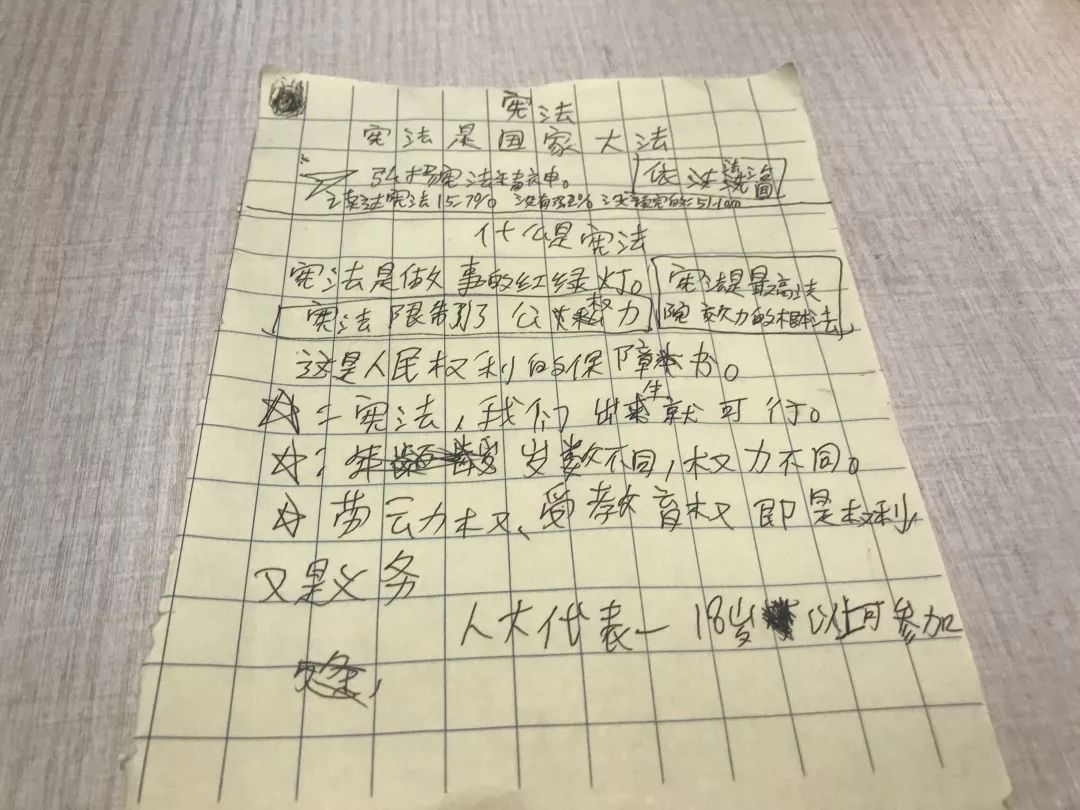 宪法
宪法是国家大法
弘扬宪法精神。
依法治国
读过宪法15.7%
什么是宪法
宪法是做事的红绿灯。
宪法是最高法
院效力的根法
宪法限制了公权力
这是人民权利的保障书。
☆:宪法,我们出生就可行。
☆:岁数不同,权力不同。
☆劳云力权、受教育权即是权利,
又是义务
人大代表—18岁以上可参加